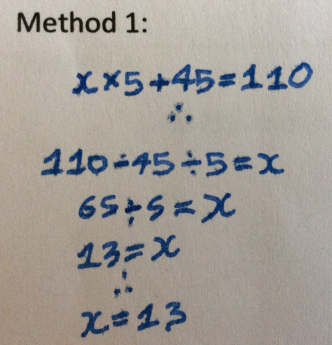 Method 1:
x×5+45=110
∴
110-45÷5=x
65÷5=x
13=x
∴
x=13